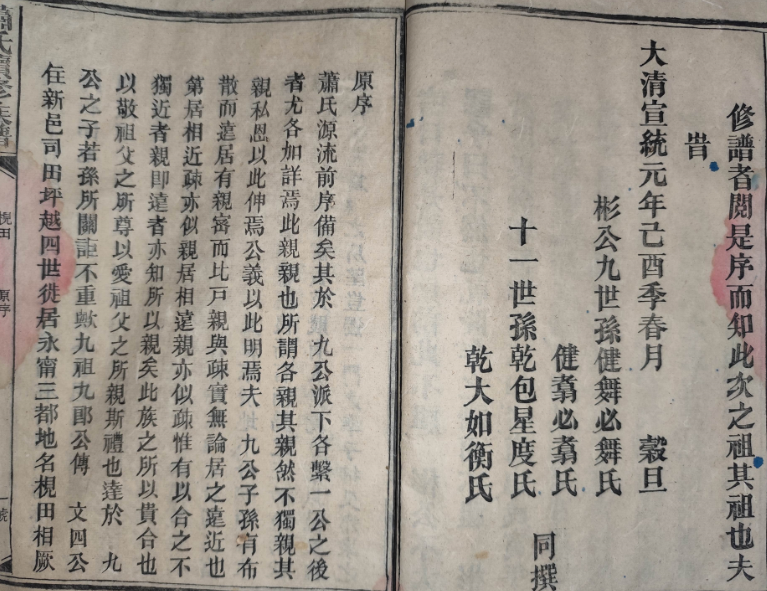 修譜者閱是序而知此次之祖其祖也夫
旹
大清宣統元年己酉季春月 穀旦
彬公九世孫健舞必舞氏
健翥必翥氏
十一世孫乾包星度氏
乾大如衡氏
同撰
原序
蕭氏源流前序備矣其於 九公派下各繫一公之後
者尤各加詳焉此親親也所謂各親其親然不獨親其
親私恩以此伸焉公義以此明焉夫 九公子孫有布
散而遠居有親密而比戶親與疎實無論居之遠近也
第居相近疎亦似親居相遠親亦似疎惟有以合之不
獨近者親即遠者亦知所以親矣此族之所以貴合也
以敬祖父之所尊以愛祖父之所親斯禮也達於 九
公之子若孫所關詎不重歟九祖九郎公傳 文四公
在新邑司田坪越四世徙居永甯三都地名梘田相厥
蕭氏續修族譜
梘田 原序
一號